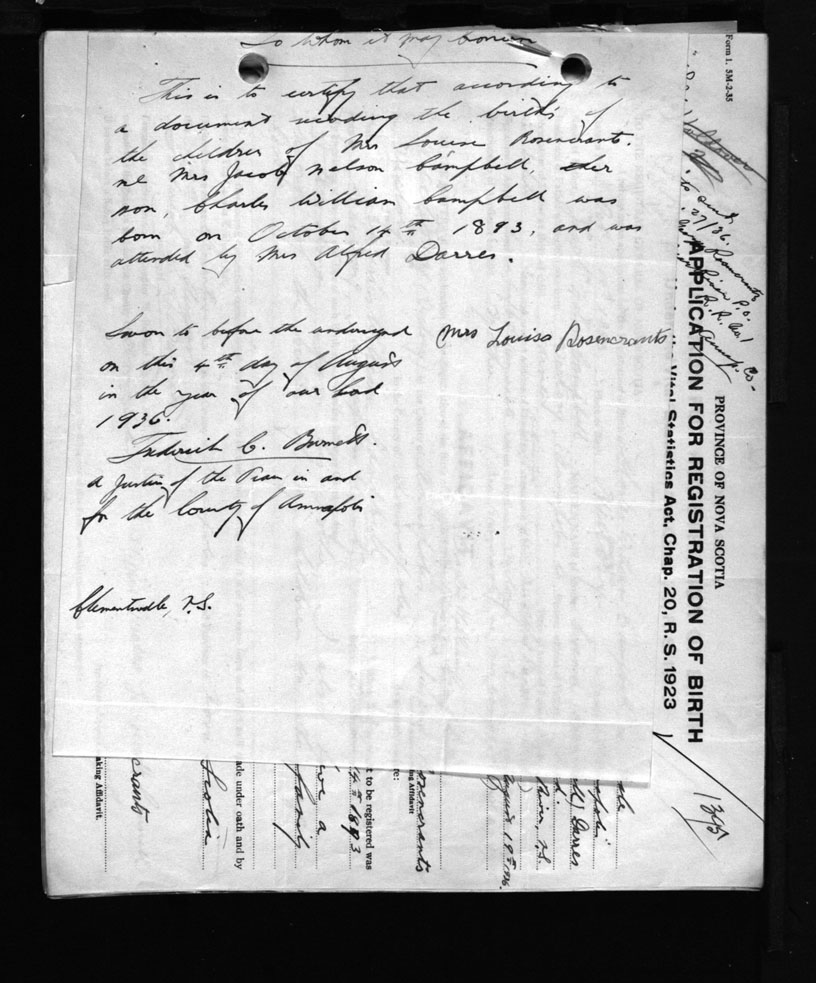 To whom it may concern
This is to certify that according to
a document recording the births of
the children of Mrs Louise Rosencrants.
né Mrs Jacob Nelson Campbell, her
son, Charles William Campbell was
born on October 14th 1893, and was
attended by Mrs Alfred Darres.
Sworn to before the undersigned
on this 4th day of August
in the year of our Lord
1936.
Mrs Louisa Rosencrants
Frederick C. Burnett.
a Justice of the Peace in and
for the County of Annapolis
Clementsvale, N.S.
Form 1. 5M-2-35
PROVINCE OF NOVA SCOTIA
APPLICATION FOR REGISTRATION OF BIRTH
the Vital Statistics Act, Chap. 20, R. S. 1923
27/36.
Rosencrants
River P.O.
R.R. No. 1
Co.
1395
Darres
River, N.S.
August 19th 1936.
osencrants
ing Affidavit
re:
t to be registered was
14th 1893
ive a
family
ade under oath and by
Scotia
crants
aking Affidavit.